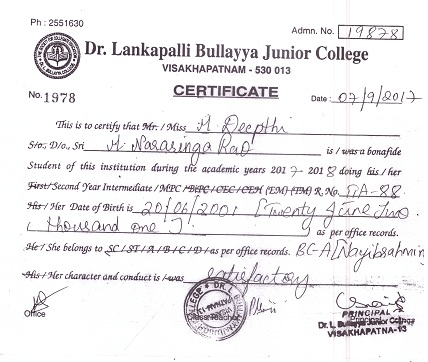 Ph : 2551630
Admn. No. 19878
Dr. Lankapalli Bullayya Junior College
VISAKHAPATNAM - 530 013
No. 1978
CERTIFICATE
Date : 07/9/2017
This is to certify that Mr. / Miss M Deepthi
S/o., D/o., Sri M. Narasinga Rao is / was a bonafide
Student of this institution during the academic years 2017 - 2018 doing his / her
First / Second Year Intermediate / MPC / BiPC / CEC / CEH (EM) (TM) R. No. IIA-88
His / Her Date of Birth is 20/06/2001 [Twenty June Two
thousand one] as per office records.
He / She belongs to SC / ST / A / B / C / D / as per office records. BC-A [Nayibrahmin
His / Her character and conduct is / was satisfactory
Office
Class Teacher
PRINCIPAL
Principal
Dr. L. Bullayya Junior College
VISAKHAPATNA-13